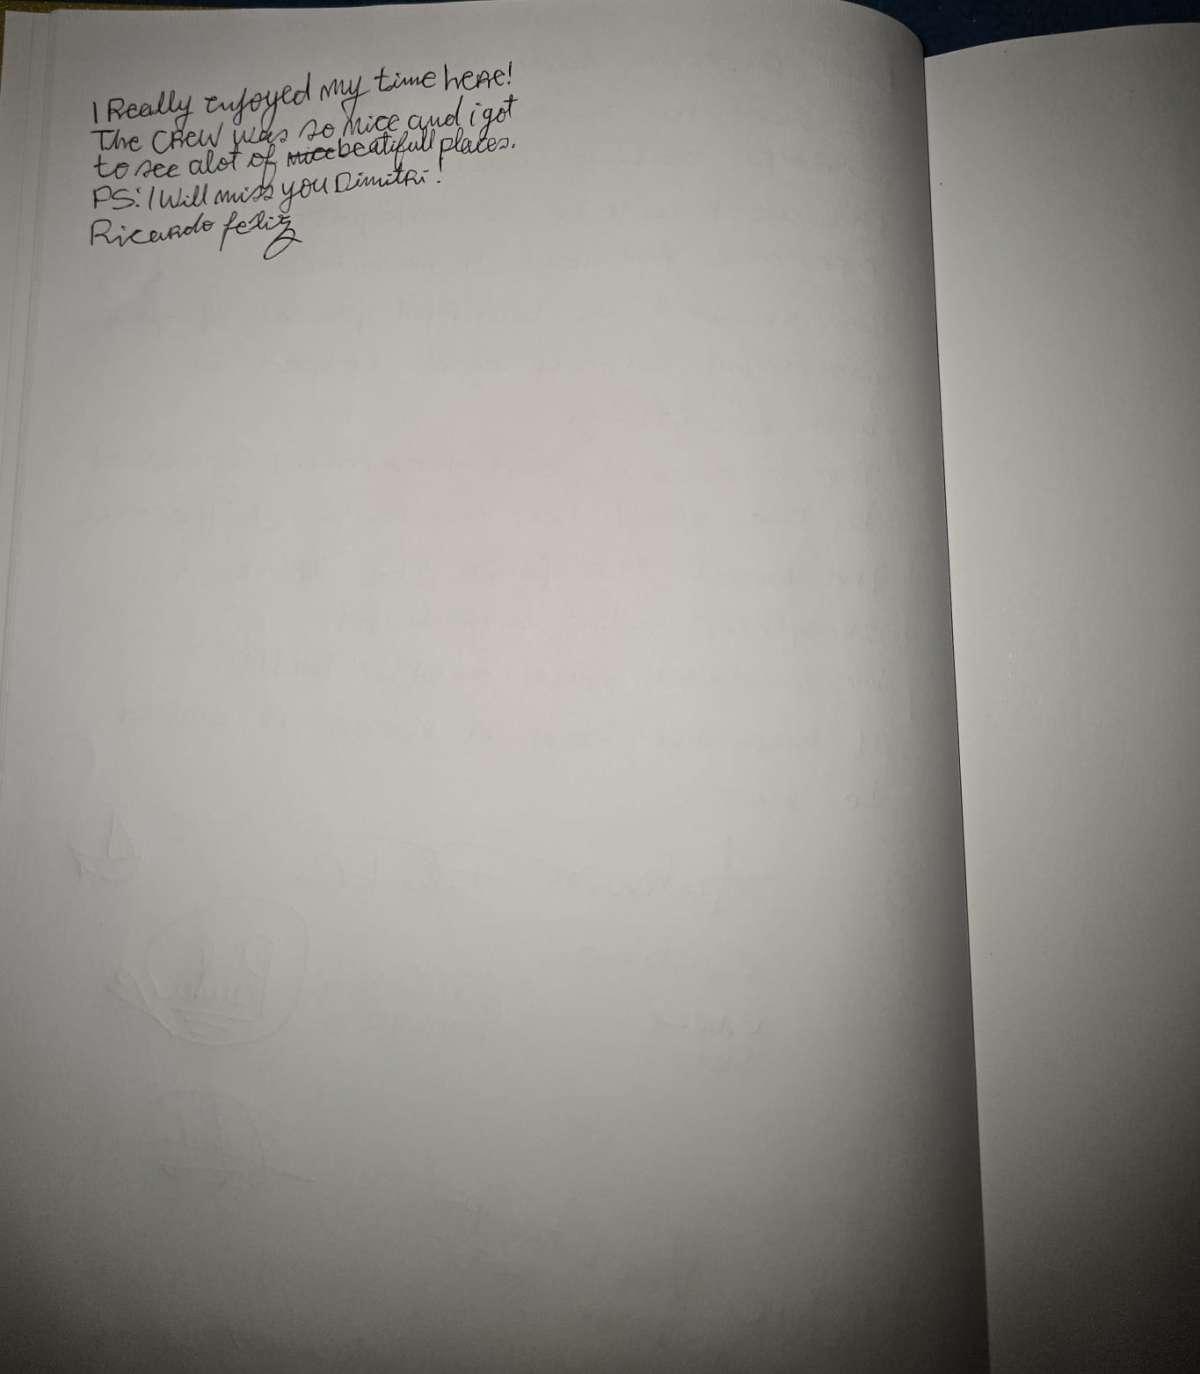 I Really enjoyed my time here!
The crew was so nice and i got
to see alot of nice beatifull places.
PS: I Will miss you Dimitri!
Ricardo feliz